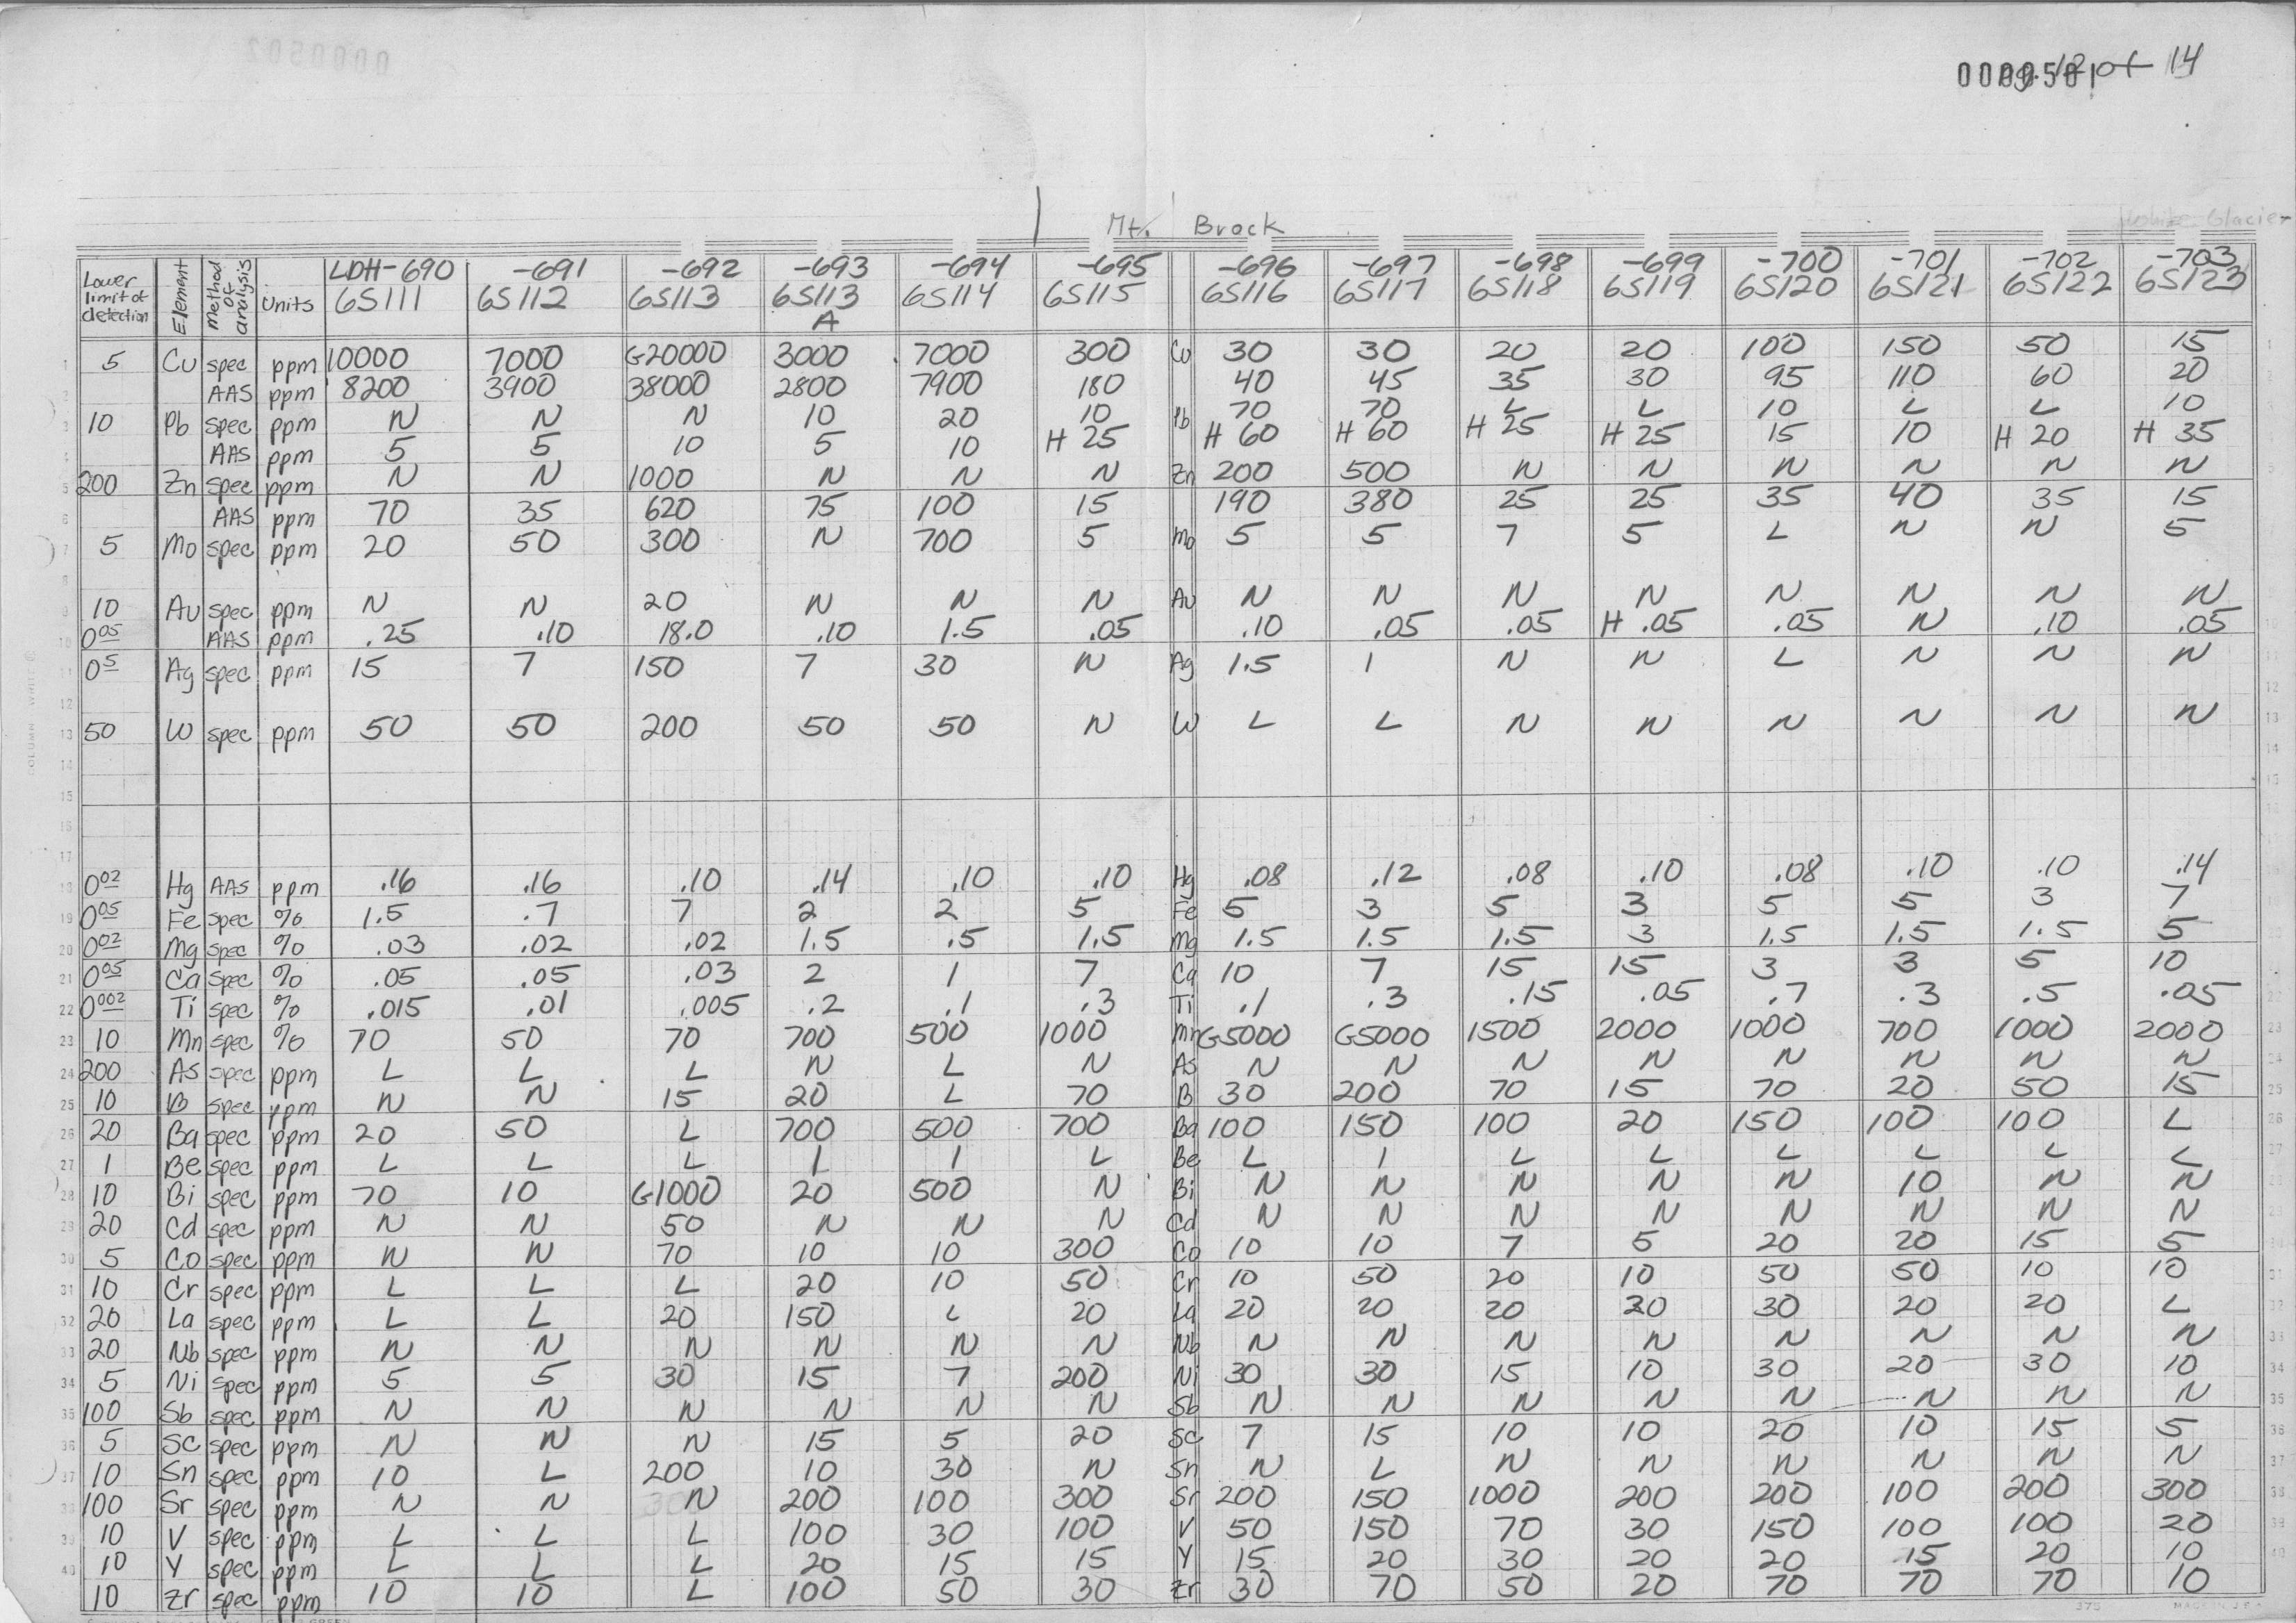 0000502
0000501
pg. 12 of 14
Mt. Brock
White Glacier
Lower limit of detection Element Method of analysis Units LDH-690 -691 -692 -693 -694 -695 -696 -697 -698 -699 -700 -701 -702 -703
6S111 6S112 6S113 6S113A 6S114 6S115 6S116 6S117 6S118 6S119 6S120 6S121 6S122 6S123
1 5 Cu spec ppm 10000 7000 G20000 3000 7000 300 Cu 30 30 20 20 100 150 50 15
2 AAS ppm 8200 3900 38000 2800 7900 180 40 45 35 30 95 110 60 20
3 10 Pb spec ppm N N N 10 20 10 Pb 70 70 L L 10 L L 10
4 AAS ppm 5 5 10 5 10 H 25 H 60 H 60 H 25 H 25 15 10 H 20 H 35
5 200 Zn spec ppm N N 1000 N N N Zn 200 500 N N N N N N
6 AAS ppm 70 35 620 75 100 15 190 380 25 25 35 40 35 15
7 5 Mo spec ppm 20 50 300 N 700 5 Mo 5 5 7 5 L N N 5
8
9 10 Au spec ppm N N 20 N N N Au N N N N N N N N
10 0.05 AAS ppm .25 .10 18.0 .10 1.5 .05 .10 .05 .05 H .05 .05 N .10 .05
11 0.5 Ag spec ppm 15 7 150 7 30 N Ag 1.5 1 N N L N N N
12
13 50 W spec ppm 50 50 200 50 50 N W L L N N N N N N
14
15
16
17
18 0.02 Hg AAS ppm .16 .16 .10 .14 .10 .10 Hg .08 .12 .08 .10 .08 .10 .10 .14
19 0.05 Fe spec % 1.5 .7 7 2 2 5 Fe 5 3 5 3 5 5 3 7
20 0.02 Mg spec % .03 .02 .02 1.5 .5 1.5 Mg 1.5 1.5 1.5 3 1.5 1.5 1.5 5
21 0.05 Ca spec % .05 .05 .03 2 1 7 Ca 10 7 15 15 3 3 5 10
22 0.002 Ti spec % .015 .01 .005 .2 .1 .3 Ti .1 .3 .15 .05 .7 .3 .5 .05
23 10 Mn spec % 70 50 70 700 500 1000 Mn G5000 G5000 1500 2000 1000 700 1000 2000
24 200 As spec ppm L L L N L N As N N N N N N N N
25 10 B spec ppm N N 15 20 L 70 B 30 200 70 15 70 20 50 15
26 20 Ba spec ppm 20 50 L 700 500 700 Ba 100 150 100 20 150 100 100 L
27 1 Be spec ppm L L L 1 1 L Be L 1 L L L L L L
28 10 Bi spec ppm 70 10 G1000 20 500 N Bi N N N N N 10 N N
29 20 Cd spec ppm N N 50 N N N Cd N N N N N N N N
30 5 Co spec ppm N N 70 10 10 300 Co 10 10 7 5 20 20 15 5
31 10 Cr spec ppm L L L 20 10 50 Cr 10 50 20 10 50 50 10 10
32 20 La spec ppm L L 20 150 L 20 La 20 20 20 20 30 20 20 L
33 20 Nb spec ppm N N N N N N Nb N N N N N N N N
34 5 Ni spec ppm 5 5 30 15 7 200 Ni 30 30 15 10 30 20 30 10
35 100 Sb spec ppm N N N N N N Sb N N N N N N N N
36 5 Sc spec ppm N N N 15 5 20 Sc 7 15 10 10 20 10 15 5
37 10 Sn spec ppm 10 L 200 10 30 N Sn N L N N N N N N
38 100 Sr spec ppm N N N 200 100 300 Sr 200 150 1000 200 200 100 200 300
39 10 V spec ppm L L L 100 30 100 V 50 150 70 30 150 100 100 20
40 10 Y spec ppm L L L 20 15 15 Y 15 20 30 20 20 15 20 10
10 Zr spec ppm 10 10 L 100 50 30 Zr 30 70 50 20 70 70 70 10